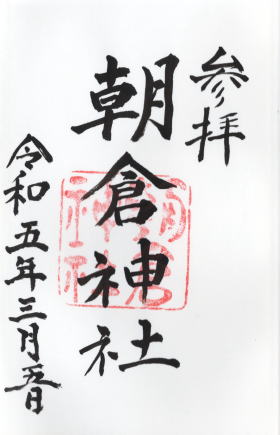 参拝
朝倉神社
令和五年三月五日